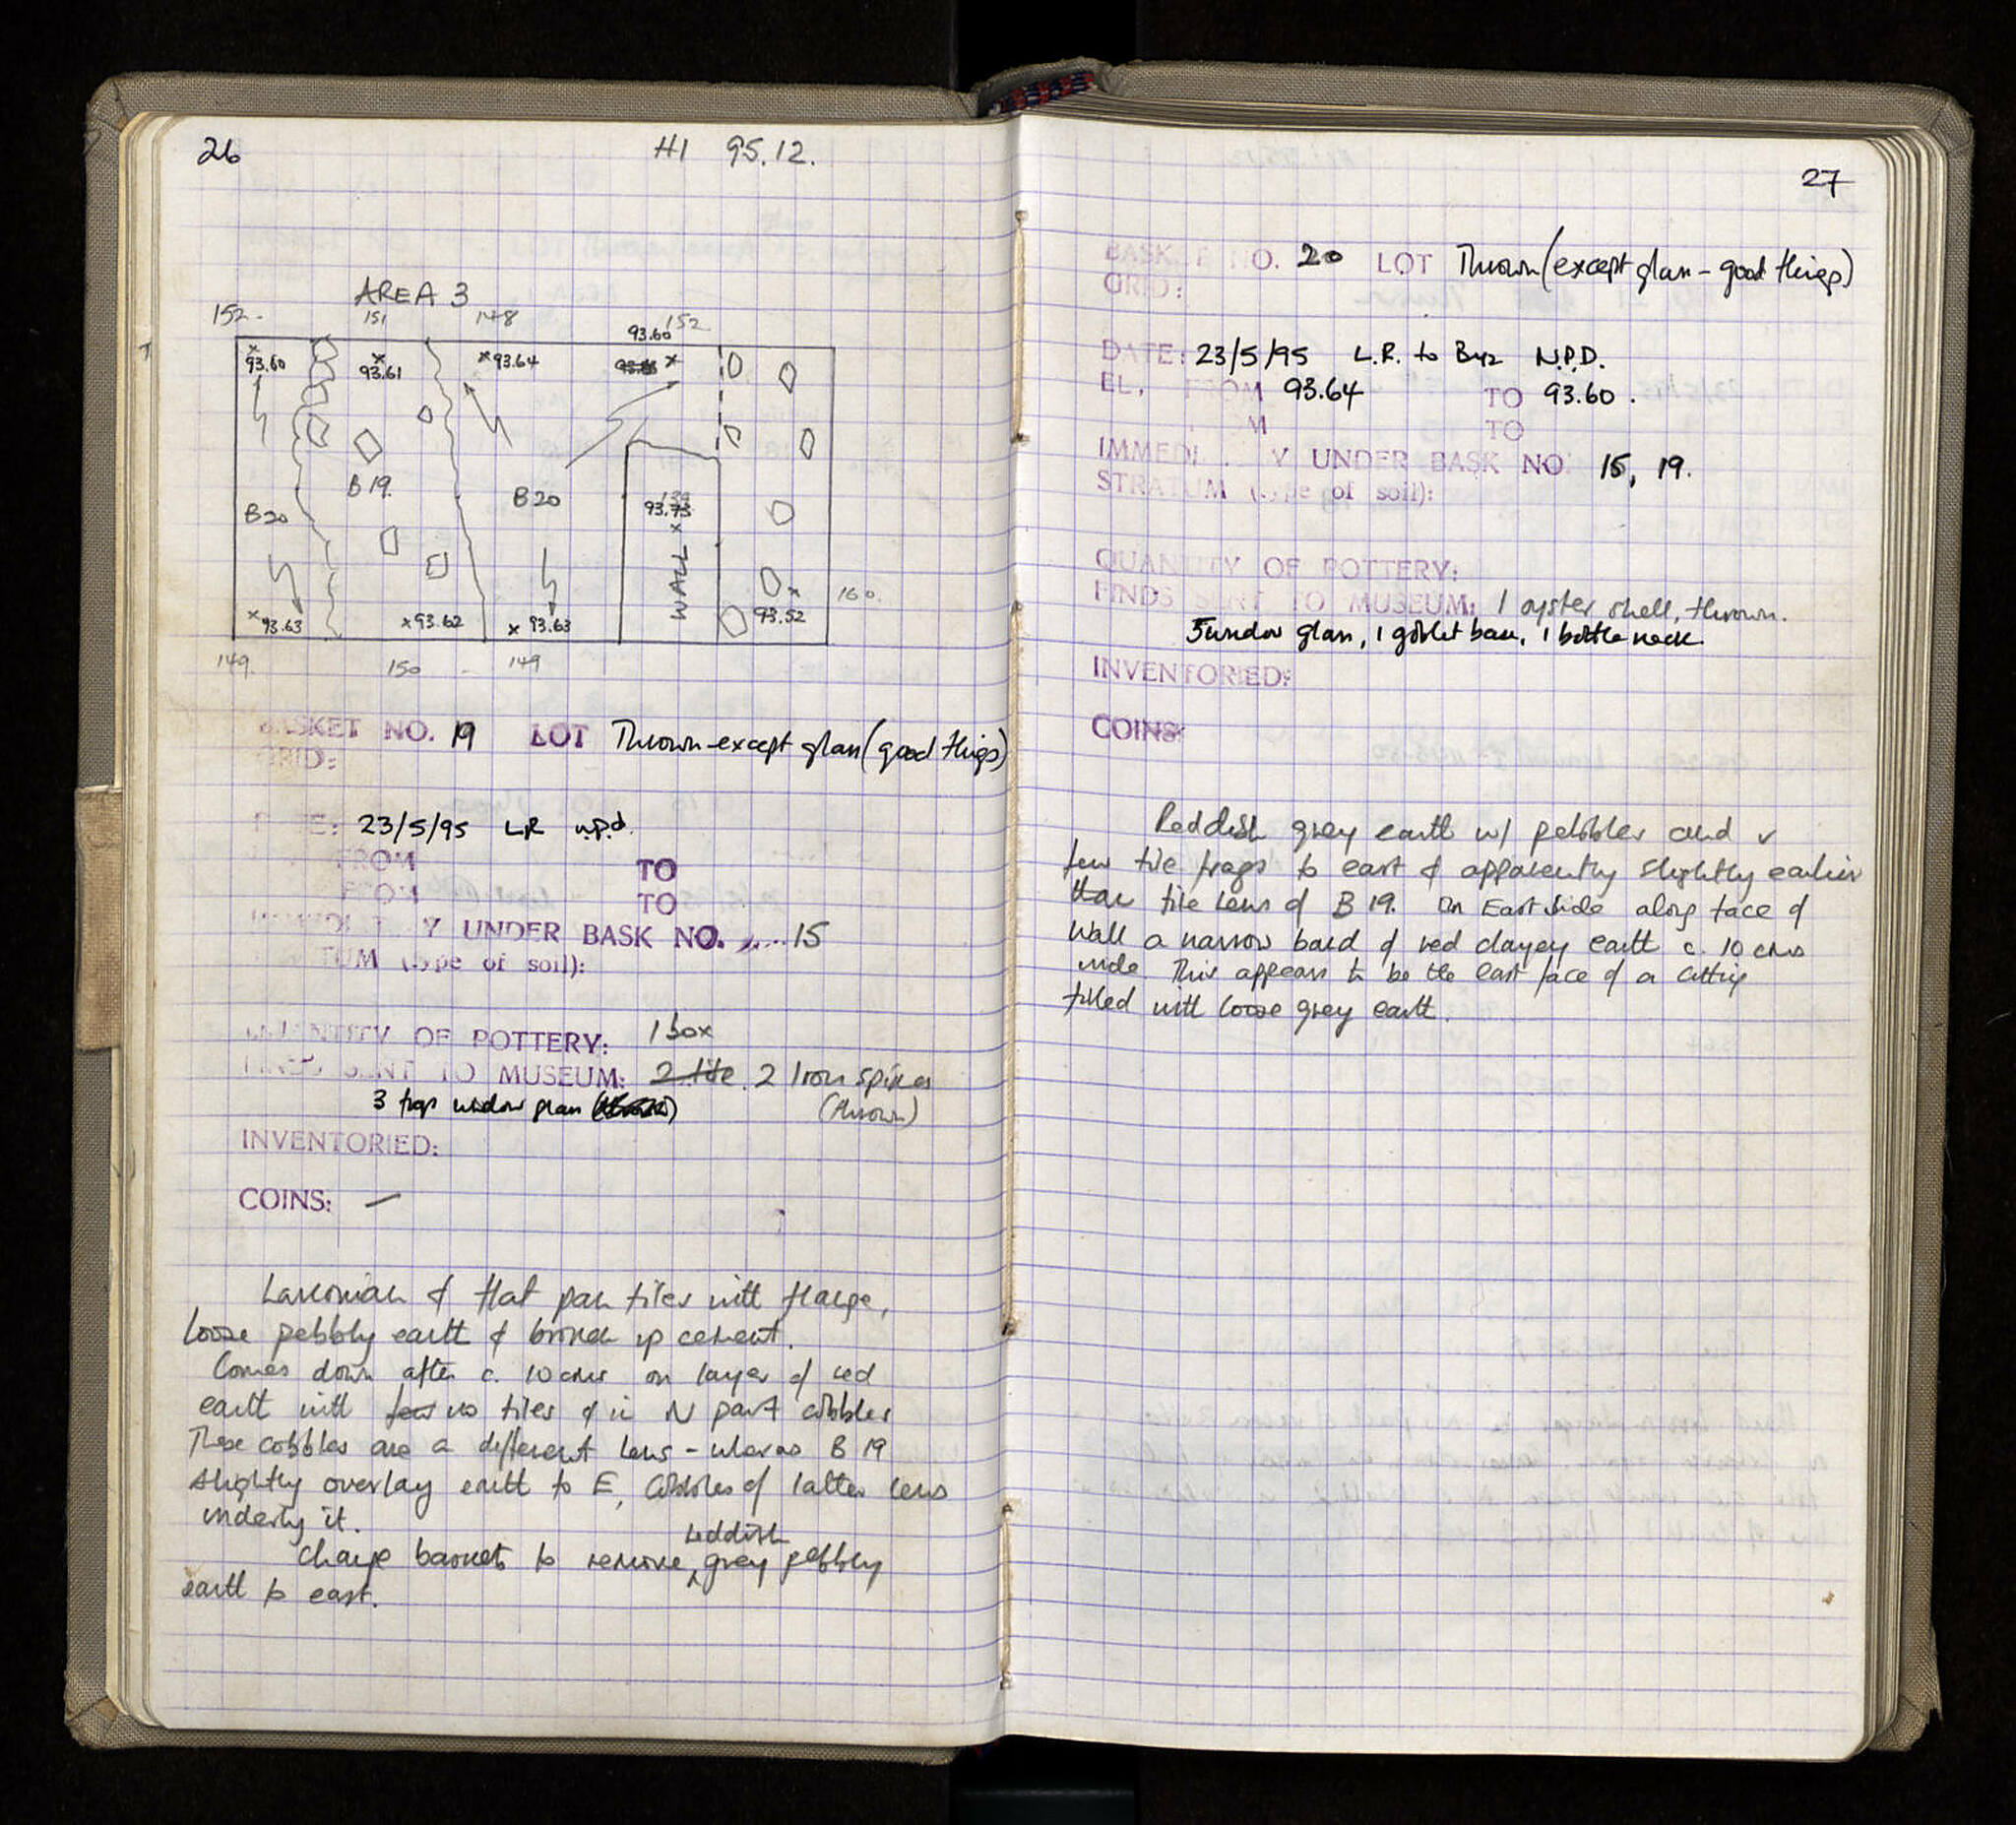 26
HI 95.12.
AREA 3
152. 151 148 152
93.60
93.60 93.61 93.64
B19. B20
B20
93.73
WALL
160.
93.63 93.62 93.63 93.52
149. 150 - 149
BASKET NO. 19 LOT Thrown-except glass (good things)
GRID:
DATE: 23/5/95 LR n.p.d.
FROM TO
FROM TO
Y UNDER BASK NO. 15
TUM (type of soil):
QUANTITY OF POTTERY: 1 box
FINDS SENT TO MUSEUM: 2 tile. 2 Iron spikes
3 frags window glass (thrown)
INVENTORIED:
COINS: —
Laconian & flat pan tiles with flange,
loose pebbly earth & broken up cement.
Comes down after c. 10 cms on layer of red
earth with few no tiles & in N part cobbles
These cobbles are a different lens - wheras B 19
slightly overlay earth to E, cobbles of latter lens
underly it.
Change baskets to remove reddish grey pebbly
earth to east.
27
BASKET NO. 20 LOT Thrown (except glass - good things)
GRID:
DATE: 23/5/95 L.R. to Byz N.P.D.
EL. FROM 93.64 TO 93.60.
M TO
IMMEDI Y UNDER BASK NO: 15, 19.
STRATUM (type of soil):
QUANTITY OF POTTERY:
FINDS SENT TO MUSEUM: 1 oyster shell, thrown.
5 window glass, 1 goblet base, 1 bottle neck.
INVENTORIED:
COINS:
Reddish grey earth w/ pebbles and v
few tile frags to east & apparently slightly earlier
than tile lens of B 19. On East side along face of
wall a narrow band of red clayey earth c. 10 cms
wide. This appears to be the east face of a cutting
filled with loose grey earth.